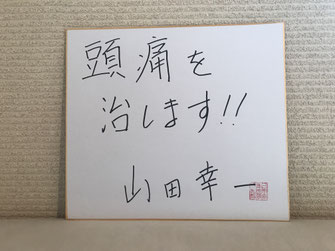 頭痛を
治します!!
山田幸一